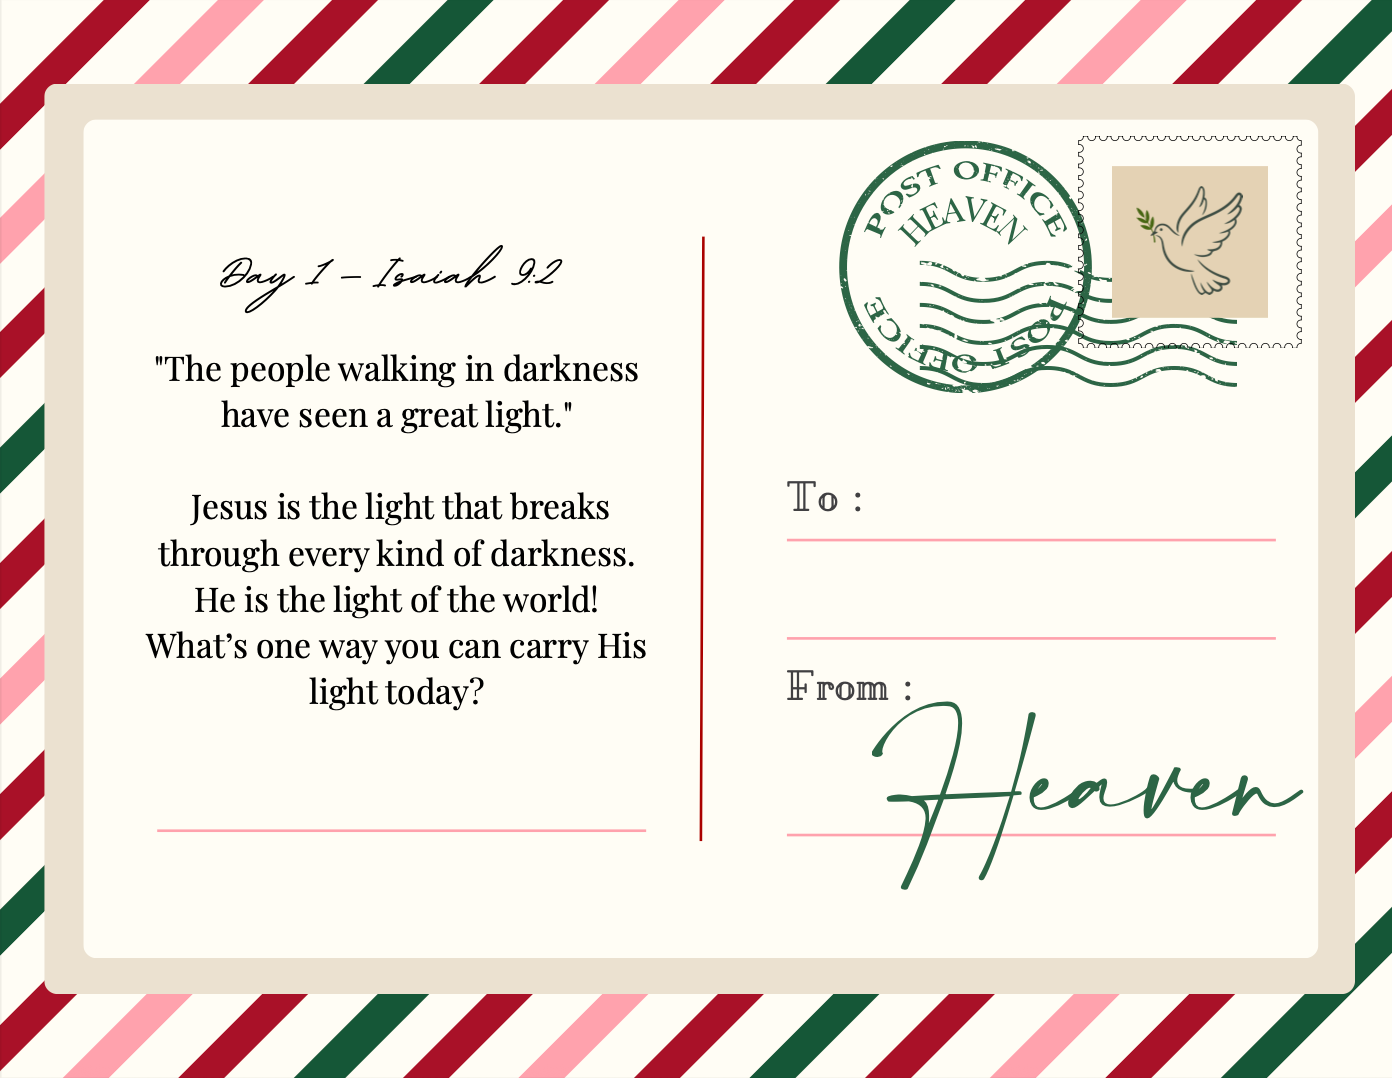 Day 1 – Isaiah 9:2
"The people walking in darkness
have seen a great light."
Jesus is the light that breaks
through every kind of darkness.
He is the light of the world!
What’s one way you can carry His
light today?
POST OFFICE
HEAVEN
POST OFFICE
To :
From :
Heaven